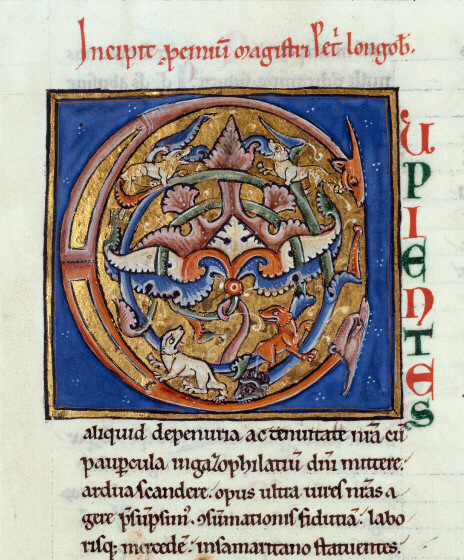 Incipit phemiū magistri Petꝛ̄ longob̄.
C
UPIENTES
aliquid depenuria ac tenuitate nr̄a cū
paup̱cula ingaꝫophilatiū dn̄i mittere.
ardua scandere. opus ultra uires nr̄as a
gere p̄sūpsim᾽. ꝯsūmationis fidutiā. labo
risq; mercedē. insamaritano statuentes